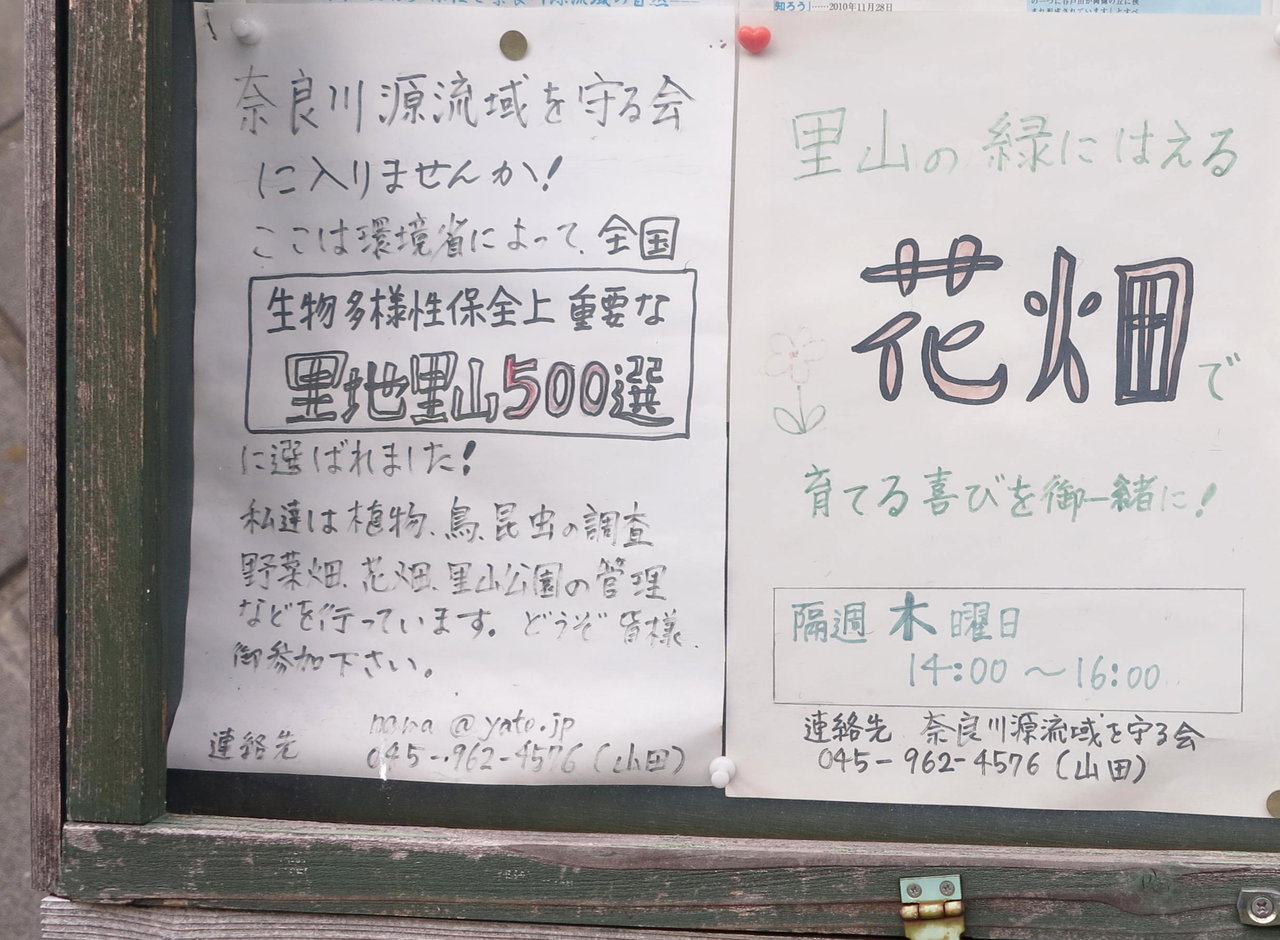 知ろう」……2010年11月28日
奈良川源流域を守る会
に入りませんか!
ここは環境省によって、全国
生物多様性保全上重要な
里地里山500選
に選ばれました!
私達は植物、鳥、昆虫の調査
野菜畑、花畑、里山公園の管理
などを行っています。どうぞ皆様、
御参加下さい。
連絡先
@yato.jp
045-962-4576(山田)
里山の緑にはえる
花畑で
育てる喜びを御一緒に!
隔週 木曜日
14:00〜16:00
連絡先 奈良川源流域を守る会
045-962-4576(山田)